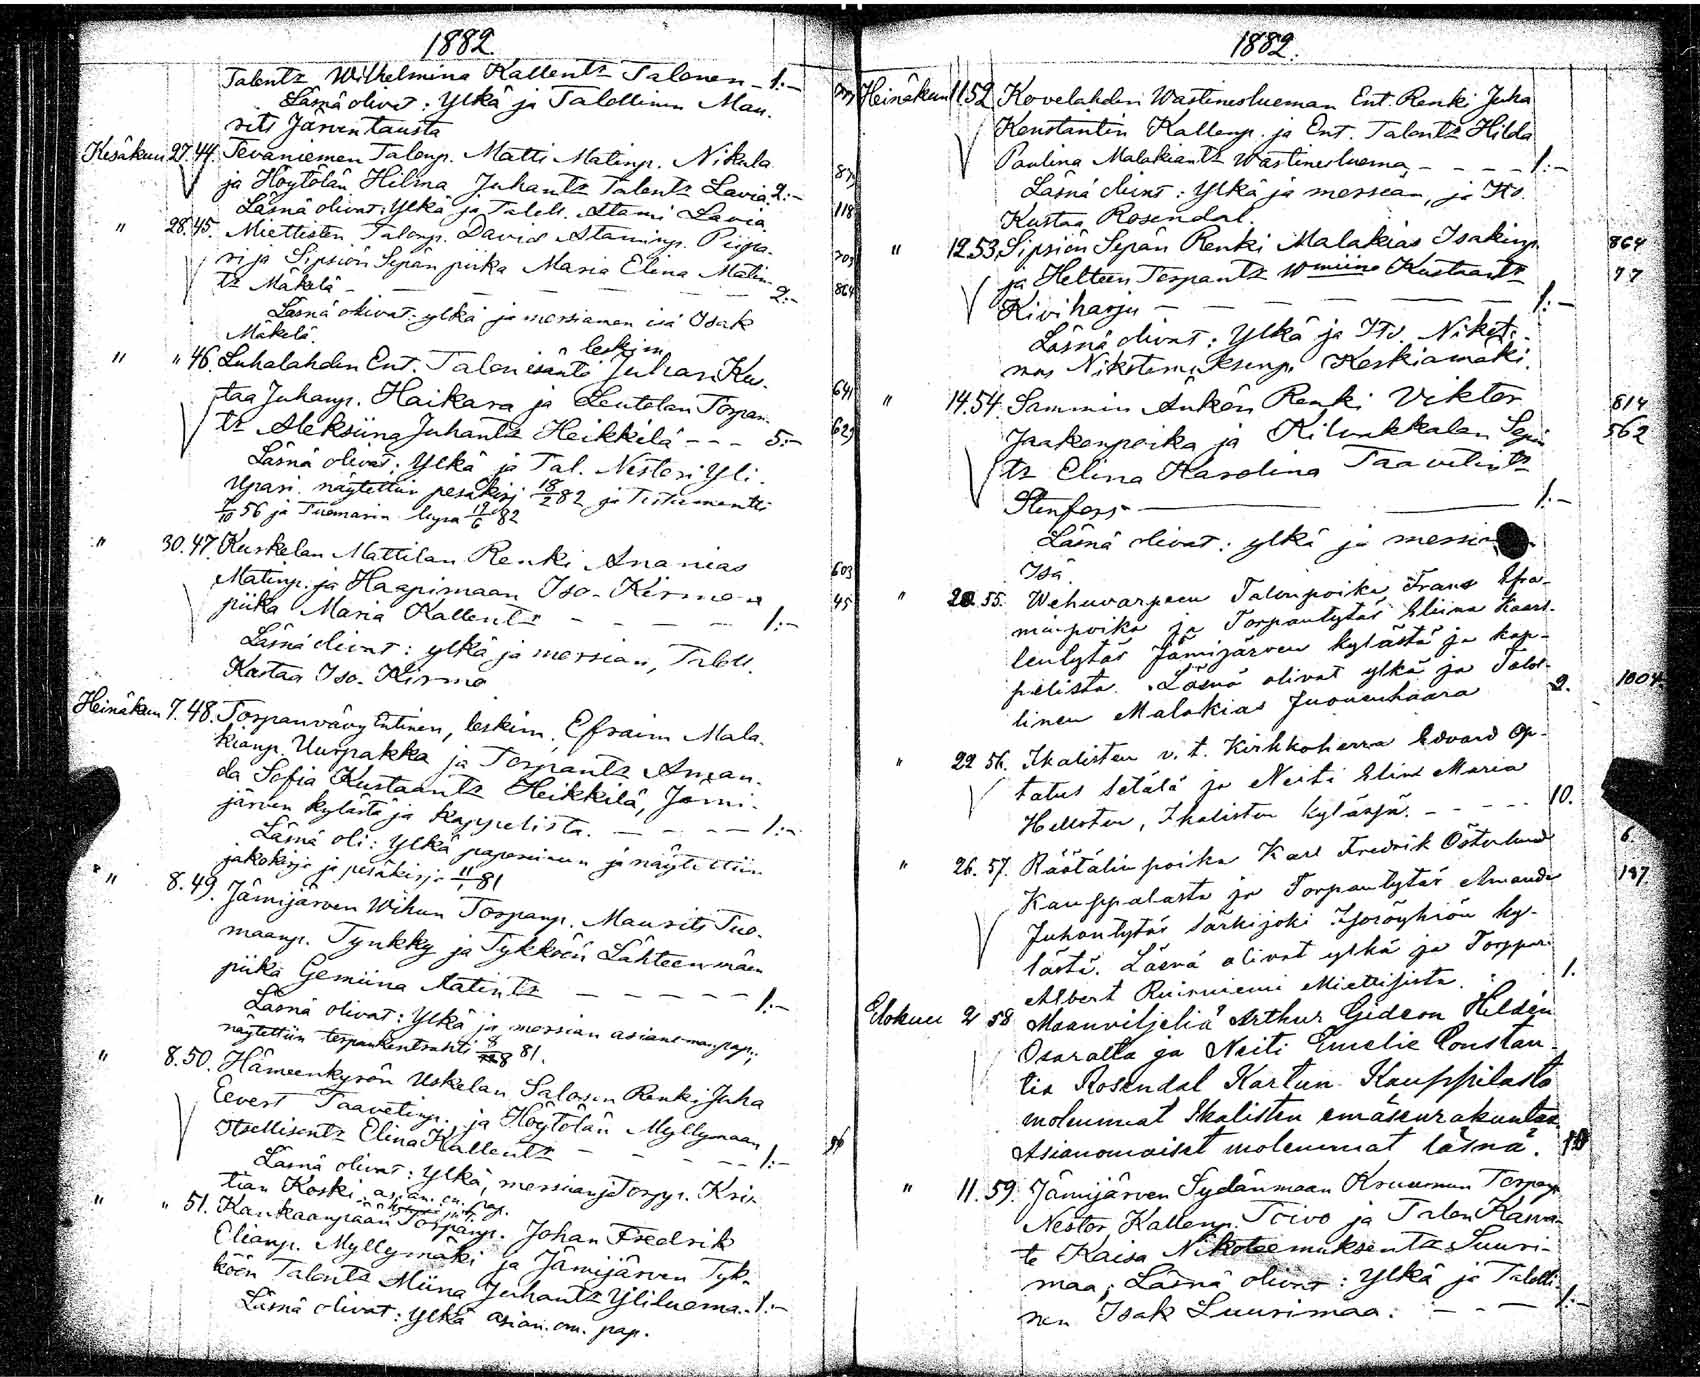 1882.
Talentr Wilhelmina Kallentr Talonen - 1:-
Läsnä olivat: Ylkä ja Talollinen Mau-
rits Järventausta
Kesäkuu 27. 44. Tevaniemen Talonp. Matti Matinp. Nikula
ja Höytölän Hilma Juhantr Talentr Lavia. 2:-
Läsnä olivat: Ylkä ja Taloll. Atami Lavia.
118
" 28. 45. Miettisten Talonp. David Ataminp. Piipa-
ri ja Sipsiön Sepän piika Maria Elina Matin-
tr Mäkelä - 2:-
864
Läsnä olivat: ylkä ja morsiamen isä Isak
Mäkelä.
leskim.
" " 46. Luhalahden Ent. Talon isäntä Juhan Kus-
taa Juhanp. Haikara ja Leutolan Torpan-
641
tr Aleksiina Juhantr Heikkilä - - - 5:-
629
Läsnä olivat: Ylkä ja Tal. Nestori Yli-
Upari. näytettiin pesäkirj 18/2 82 ja Testamentti
7/10 56 ja Tuomarin lupa 19/6 82
" 30. 47. Kuskelan Mattilan Renki Ananias
603
Matinp. ja Haapimaan Iso-Kirmo n
45
piika Maria Kallentr - - - - 1:-
Läsnä olivat: ylkä ja morsian, Taloll.
Kustaa Iso-Kirmo
Heinäkuu 7. 48. Torpanvävy Entinen, leskim. Efraim Mala-
kianp. Uurpakka ja Torpantr Aman-
da Sofia Kustaantr Heikkilä, Jämi-
järven kylästä ja kappelista. - - - - 1:-
Läsnä oli: Ylkä papereineen ja näytettiin
jakokirja ja pesäkirja 11/1 81
" 8. 49. Jämijärven Wihun Torpanp. Maurits Tuo-
maanp. Tynkky ja Tykköön Lähteenmäen
piika Gemiina Matintr - - - - - 1:-
Läsnä olivat: Ylkä ja morsian asianom. pap.;
näytettiin torpankontrahti 8/8 81.
" 8. 50. Hämeenkyrön Uskelan Salosen Renki Juha
Eevert Taavetinp. ja Höytölän Myllymaan
Itsellisentr Elina Kallentr - - - - 1:-
96
Läsnä olivat: Ylkä, morsian ja Torpp. Kris-
tian Koski. asian. om. pap.
" " 51. Kankaanpään Torpanp. Johan Fredrik
Elianp. Myllymäki ja Jämijärven Tyk-
köön Talentr Miina Juhantr Yliluoma. - 1:-
Läsnä olivat: Ylkä asian. om. pap.
1882.
Heinäkuu 11. 52 Kovelahden Wastinesluoman Ent. Renki Juha
Konstantin Kallenp. ja Ent. Talentr Hilda
Paulina Malakiantr Wastinesluoma - - - - 1:-
Läsnä olivat: Ylkä ja morsian, ja Its.
Kustaa Rosendal.
" 12. 53. Sipsiön Sepän Renki Malakias Isakinp.
864
ja Heltteen Torpantr Wmiina Kustaantr
77
Kiviharju - - - - 1:-
Läsnä olivat: Ylkä ja Its. Nikote-
mus Nikotemuksenp. Keskiamäki.
" 14. 54. Sammin Änkön Renki Viktor
814
Jaakonpoika ja Kilvakkalan Sepän
562
tr Elina Karolina Taavetintr
Stenfors - 1:-
Läsnä olivat: ylkä ja
Isä.
" 20. 55. Wehuvarpeen Talonpoika Frans Efra-
minpoika ja Torpantytär Eliina Kaar-
lentytär Jämijärven kylästä ja kap-
pelista. Läsnä olivat ylkä ja Talol-
2. 1004.
linen Malakias Juonenhaara
" 22 56. Ikalisten v. t. Kirkkoherra Edvard Op-
tatus Setälä ja Neiti Elin Maria
Hellsten, Ikalisten kylässä. - - - - 10.
" 26. 57. Räätälinpoika Karl Fredrik Österlund
6.
Kauppalasta ja Torpantytär Amanda
187.
Juhontytär Särkijoki Isoröyhiön ky-
lästä. Läsnä olivat ylkä ja Torppari
Albert Ruismiemi Miettisistä. 1.
Elokuu 2 58 Maanviljeliä Arthur Gideon Hildén
Osaralta ja Neiti Emelie Constan-
tia Rosendal Kartun Kauppilasta
molemmat Ikalisten emäseurakuntaa
Asianomaiset molemmat läsnä. 10
" 11. 59. Jämijärven Sydänmaan Kruunun Torpanp.
Nestor Kallenp. Toivo ja Talon Kasva-
te Kaisa Nikoteemuksentr Suuri-
maa; Läsnä olivat: Ylkä ja Talolli-
nen Isak Suurimaa. - - - 1:-